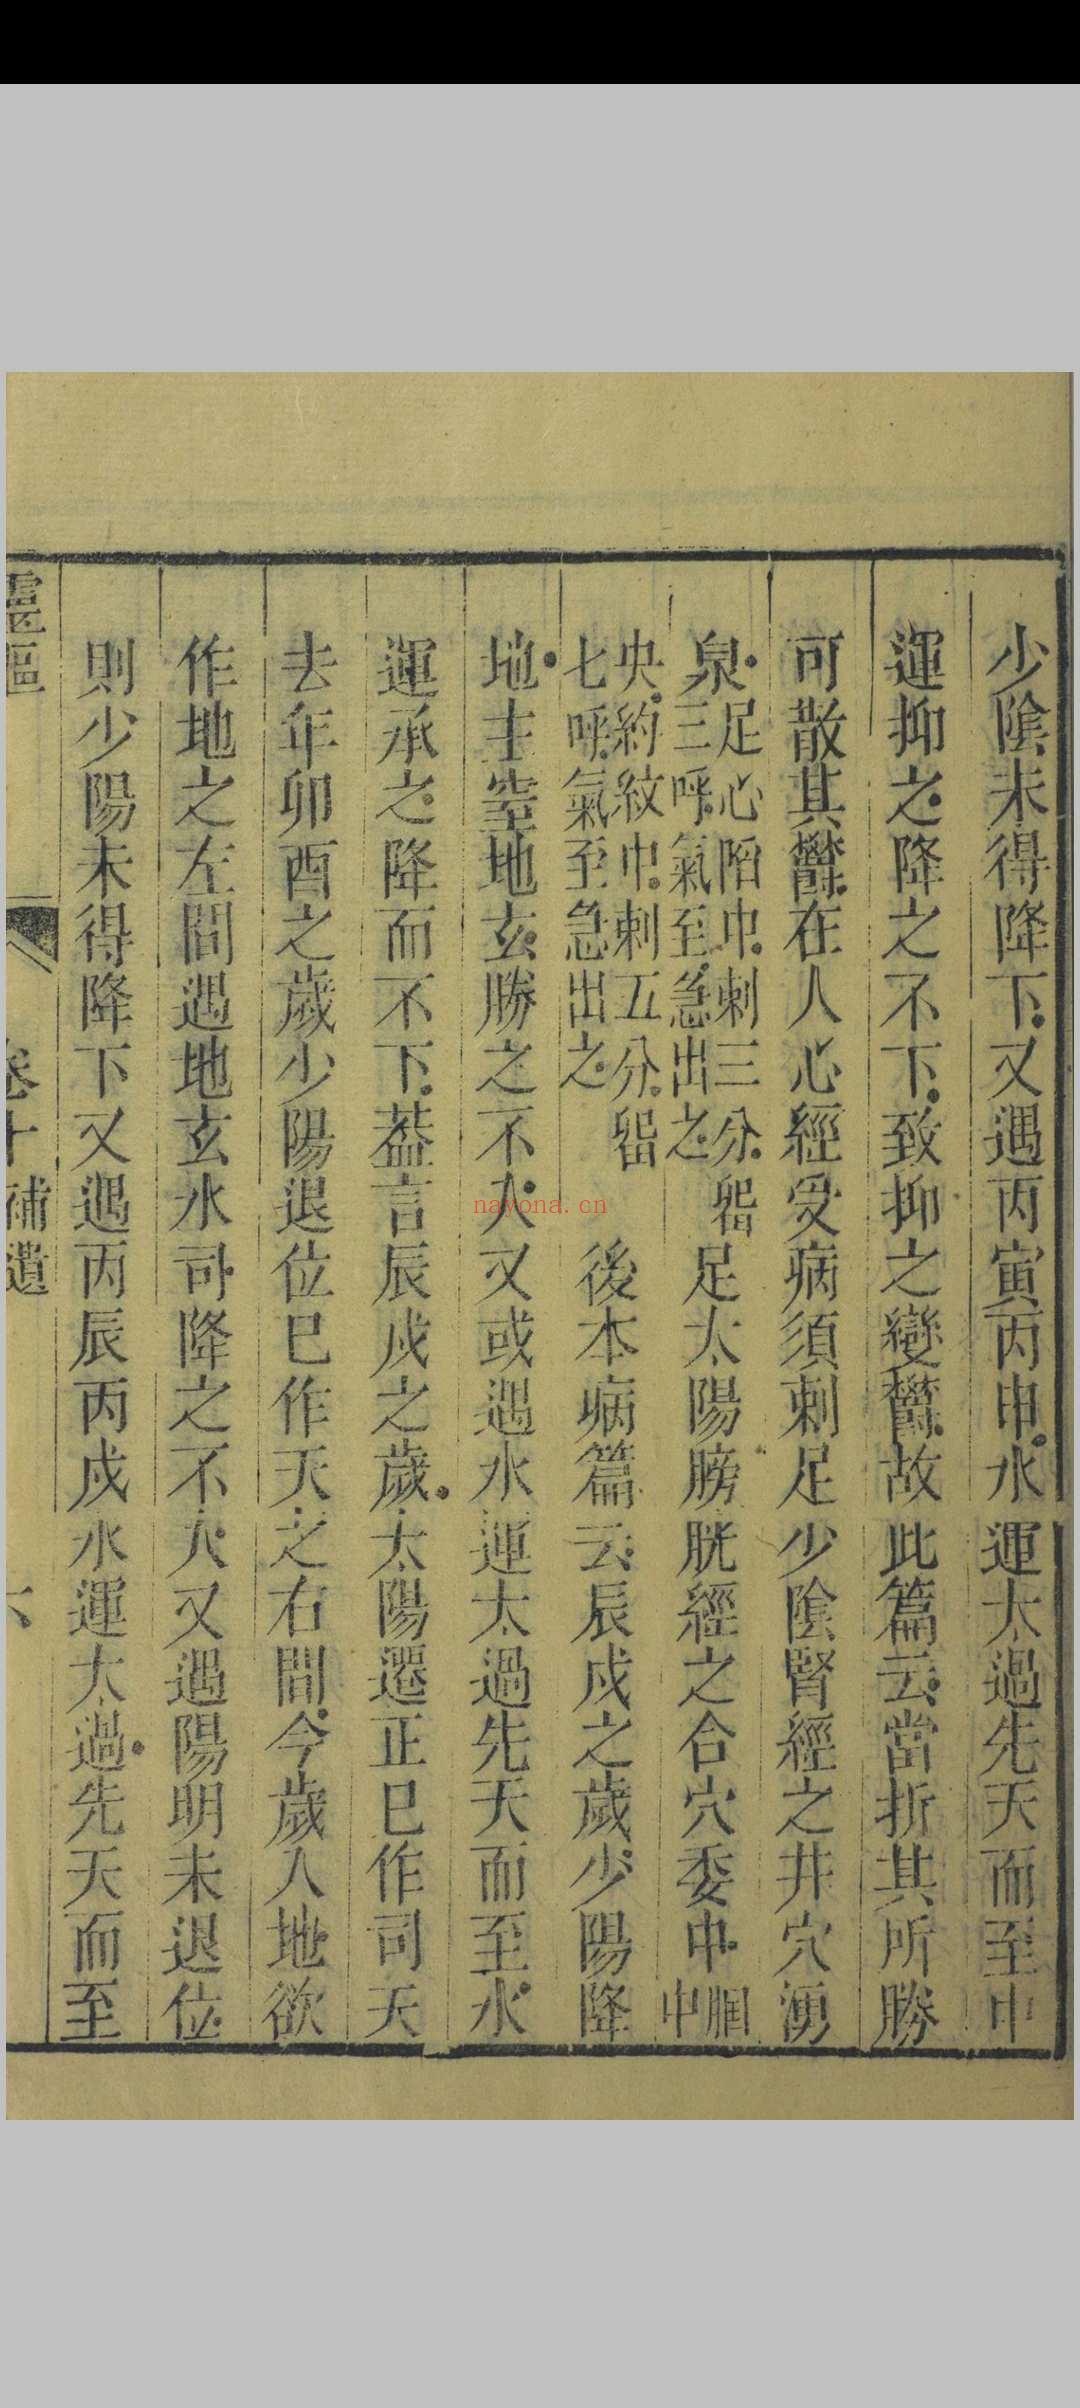 少隂未得降下又遇丙寅丙申水運太過先天而至中
運抑之降之不下致抑之變鬱故此篇云當折其所勝
可散其鬱在人心經受病須刺足少隂腎經之井穴湧
泉足心陷中刺三分留三呼氣至急出之足太陽膀胱經之合穴委中膕中
央約紋中刺五分留七呼氣至急出之後本病篇云辰戌之歲少陽降
地主窒地玄勝之不入又或遇水運太過先天而至水
運承之降而不下葢言辰戌之歲太陽遷正巳作司天
去年卯酉之歲少陽退位巳作天之右間今歲入地欲
作地之左間遇地玄水司降之不入又遇陽明未退位
則少陽未得降下又遇丙辰丙戌水運太過先天而至
靈樞 卷十補遺 六
nayona.cn